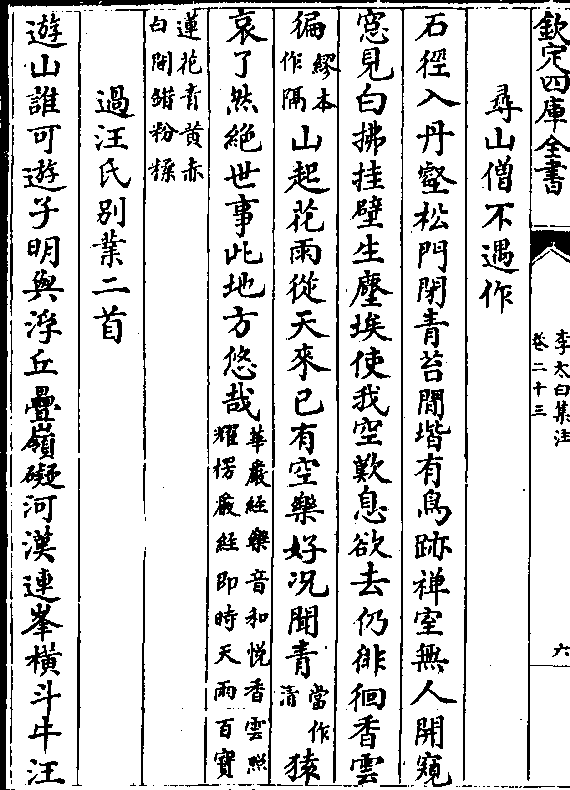 欽定四庫全書
李太白集注
卷二十三
六
尋山僧不遇作
石徑入丹壑松門閉青苔閒堦有鳥跡禪室無人開窺
窻見白拂挂壁生塵埃使我空歎息欲去仍徘徊香雲
徧繆本作隔山起花雨從天來已有空樂好况聞青當作清猿
哀了然絶世事此地方悠哉華嚴經樂音和悅香雲照耀楞嚴經即時天雨百寶
蓮花青黄赤白間錯粉糅
過汪氏别業二首
遊山誰可遊子明與浮丘疊嶺礙河漢連峯橫斗牛汪